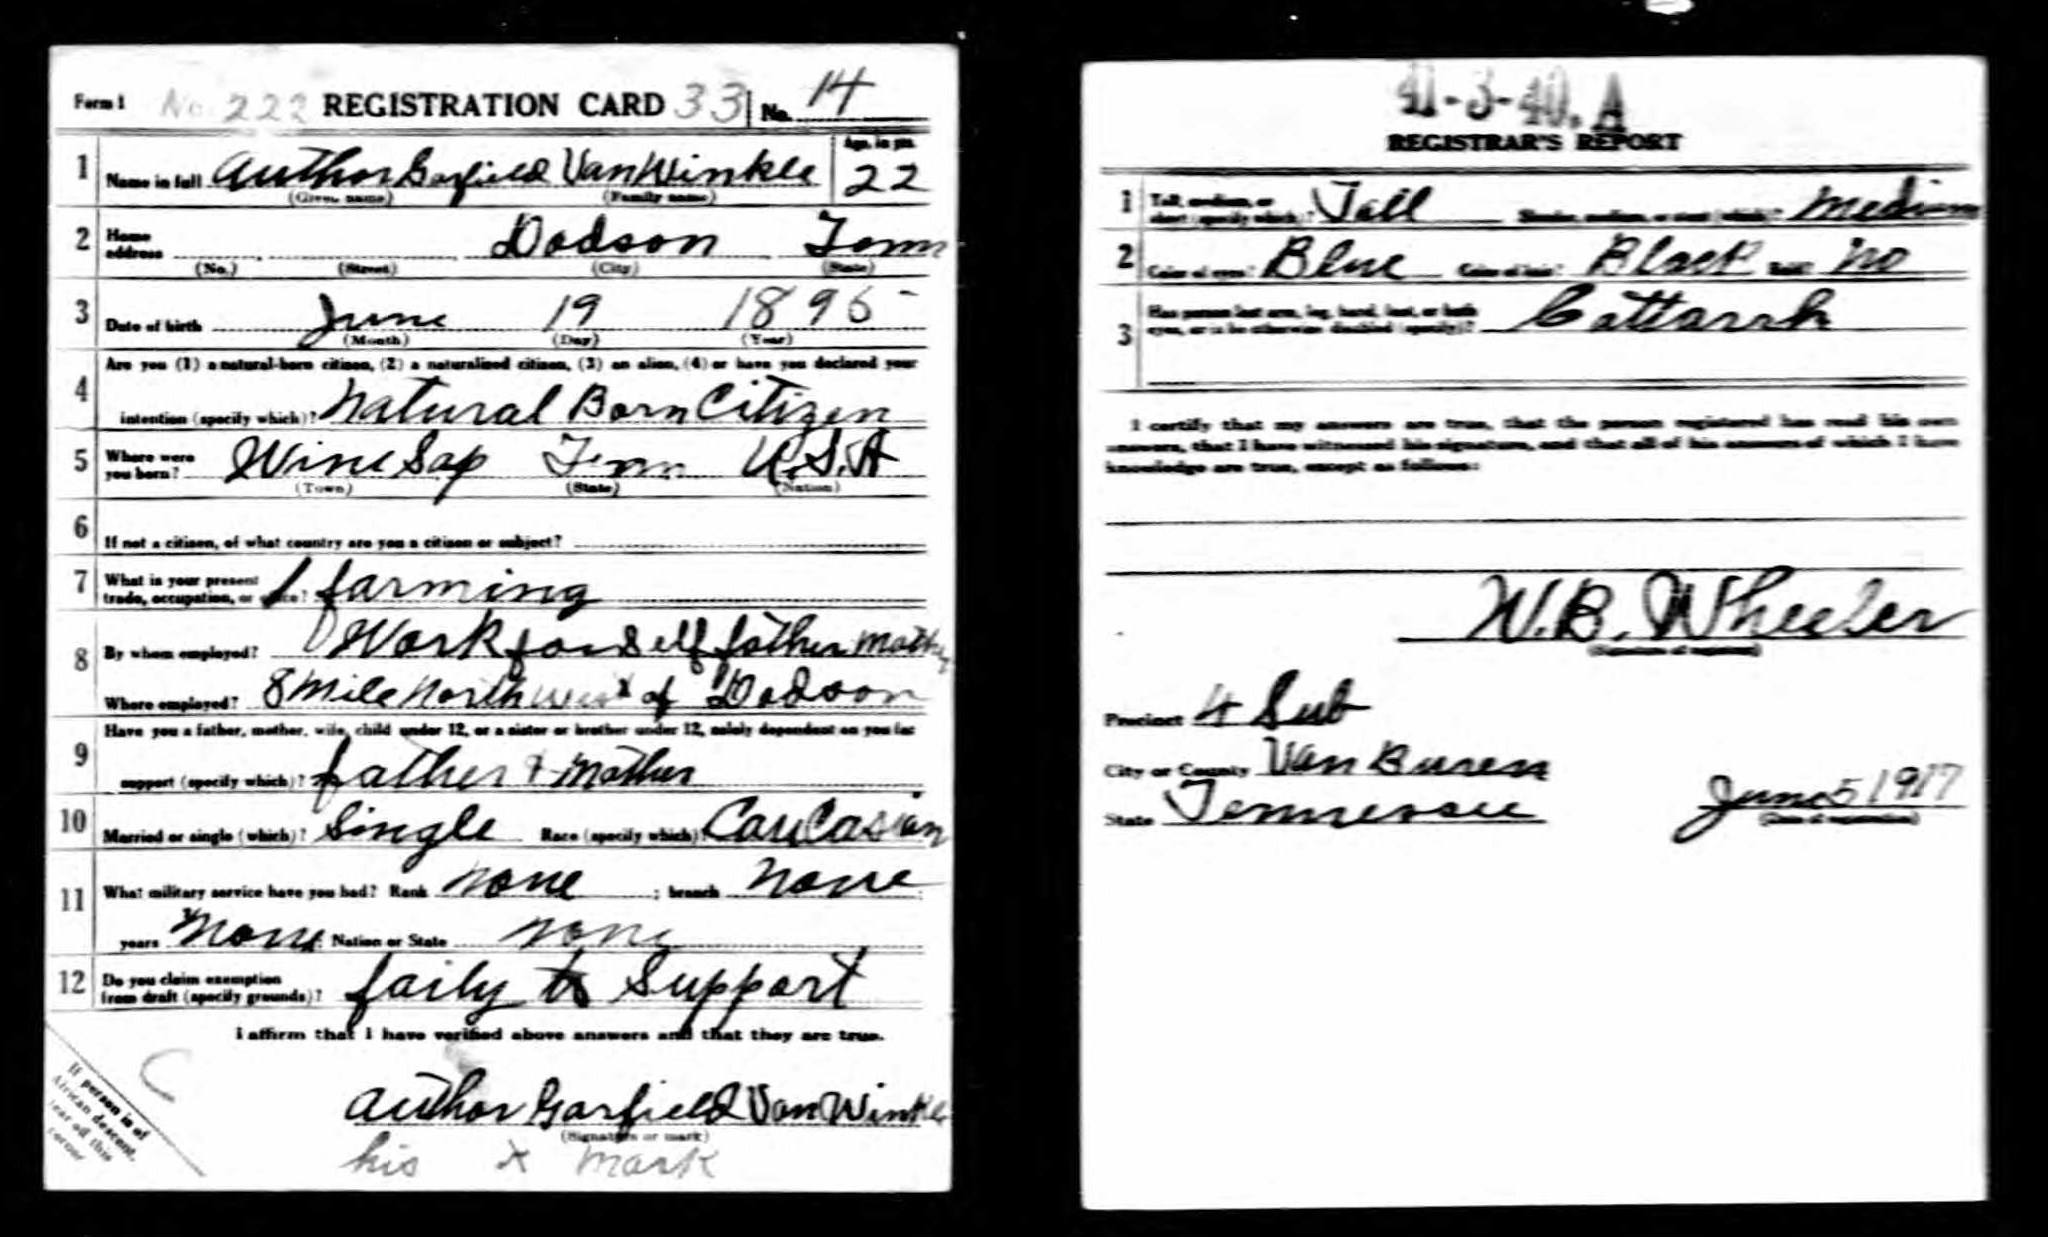 Form 1 No. 222 REGISTRATION CARD 33 No. 14
1 Name in full Author Garfield VanWinkle Age, in yrs. 22
(Given name) (Family name)
2 Home address Dodson Tenn
(No.) (Street) (City) (State)
3 Date of birth June 19 1895
(Month) (Day) (Year)
Are you (1) a natural-born citizen, (2) a naturalized citizen, (3) an alien, (4) or have you declared your
4 intention (specify which)? Natural Born Citizen
5 Where were you born? WineSap Tenn U.S.A
(Town) (State) (Nation)
6 If not a citizen, of what country are you a citizen or subject?
7 What is your present trade, occupation, or office? 1 farming
8 By whom employed? Work for Self father Mother
Where employed? 8 Mile North west of Dodson
Have you a father, mother, wife, child under 12, or a sister or brother under 12, solely dependent on you for
9 support (specify which)? father & Mother
10 Married or single (which)? Single Race (specify which)? Caucasian
11 What military service have you had? Rank None ; branch None ;
years None Nation or State None
12 Do you claim exemption from draft (specify grounds)? faily to Support
I affirm that I have verified above answers and that they are true.
Author Garfield VanWinkle
(Signature or mark)
his x mark
If person is of
African descent,
tear off this
corner
41-3-40. A
REGISTRAR'S REPORT
1 Tall, medium, or short (specify which)? Tall Slender, medium, or stout (which)? Medium
2 Color of eyes? Blue Color of hair? Black Bald? No
3 Has person lost arm, leg, hand, foot, or both eyes, or is he otherwise disabled (specify)? Cattarrh
I certify that my answers are true, that the person registered has read his own
answers, that I have witnessed his signature, and that all of his answers of which I have
knowledge are true, except as follows:
W.B. Wheeler
(Signature of registrar)
Precinct 4 Sub
City or County Van Buren
State Tennessee June 5 1917
(Date of registration)